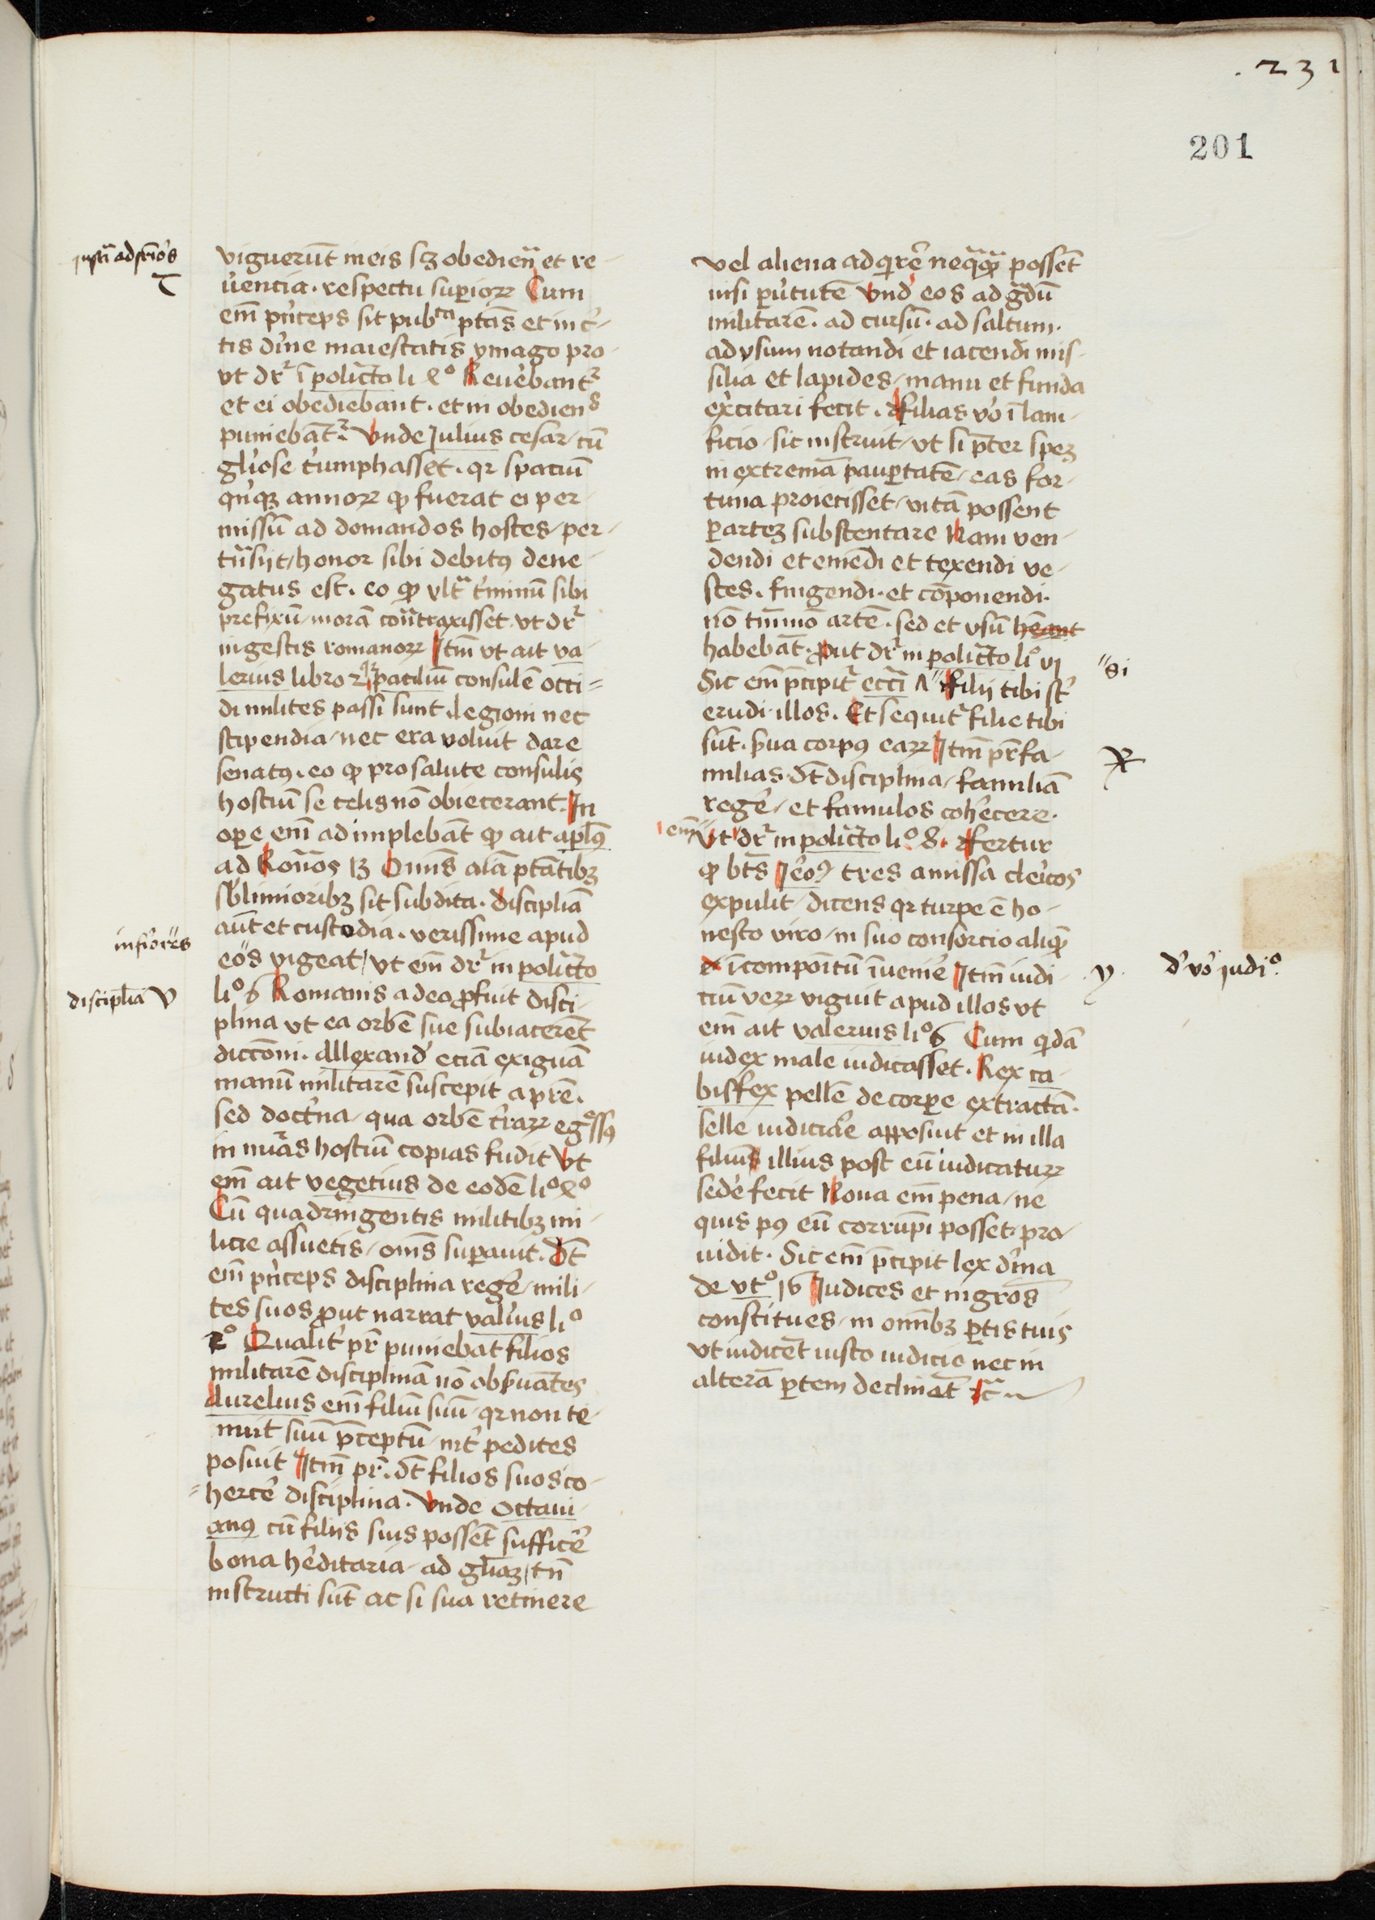 .231
201
justi͂ ad p͂rior̓s
T
viguerūt meis sꝫ obedien͂ et re-
ūencia · respectu superiorꝝ Cum
em̄ p̓nceps sit pubᶜᵃ ptās et in t̓-
tis dīne maiestatis ymago pro-
vt dr̄ ī policto li 4º Reue̓bant᷑
et ei obediebant · et in obedienˢ
puniebāt᷑ Vnde Julius cesar cū
gl̓iose t̓umphasset · qr spaciū
qn̓qꝫ annorꝝ ꝙ fuerat ei per-
missū ad domandos hostes per-
tn̄siit honor sibi debitꝰ dene-
gatus est · eo ꝙ vlt͂ t̓minū sibi
prefixū morā cont͂xisset vt dr̄
in gestis romanorꝝ Itm̄ vt ait va-
lerius libro 2º patiliū consulē occi-
di milites passi sunt · legioni nec
stipendia nec era voluit dare
senatꝰ · eo ꝙ pro salute consulis
hostiū se telis nō obiecerant In
oꝑe em̄ ad implebāt ꝙ ait apl̄us
ad Romōs 13 Om̄is aīa ptātibꝫ
sb̓limioribꝫ sit subdita · disciplīa
aūt et custodia · verissime apud
inferiores
eos vigeat vt em̄ dr̄ in policto
disciplīa V
liº 6 Romanis adeo ꝓfuit disci-
plina vt ea orbē sue subiacerēt
diccōni · Allexand̓ eciā exiguā
manū militarē suscepit a prē ·
sed doct̓na qua orbē t̓rarꝝ egºssꝰ
in nūas hostiū copias fudit vt
em̄ ait vegetius de eodē liº 4º
Cū quadringentis militibꝫ mi-
licie assuetis om̄s suꝑauit · Dt̄
em̄ p̓nceps disciplina rege̓ mili-
tes suos ꝓut narrat val̓ius liº
2º Qualit̓ pr̄ puniebāt filios
militarē disciplinā nō obẜuātes
Aurelius em̄ filiū suū qr non te-
nuit suū p̄ceptū int̓ pedites
posuit Itm̄ pr̄ · dt̄ filios suos co-
herce̓ disciplina · Vnde Octaui-
anꝰ cū filiis suis possēt suffice̓
bona he̓ditaria ad gl̄iaꝫ tn̄
instructi sūt ac si sua retinere
vel aliena adqire̓ neq͂q͂ꝫ possēt
nisi ꝑ v̓tutē vnd̓ eos ad g͂dū
militarē · ad cursū · ad saltum ·
ad vsum notandi et iacendi mis-
silia et lapides manu et funda
exe̓citari fecit · filias vo̓ ī lani-
ficio sic instruit vt si p̄ter speꝫ
in extremā pauꝑtatē eas for-
tuna proiecisset vitā possent
ꝑ arteꝫ substentare Nam ven-
dendi et emēdi et texendi ve-
stes · fingendi · et cōponendi ·
nō tm̄mō artē · sed et vsū hēant
habebāt · ꝓut dr̄ in policto liº vj
Sic em̄ p̄cipit᷑ eccī ʌ filij tibi st̓
si
erudi illos · Et sequit᷑ filie tibi
sūt · ẜua corpꝰ earꝝ Itm̄ pr̄ fa-
milias dt̄ disciplina familiā
rege̓ et famulos cohe̓cere ·
em̄
Vt dr̄ in policto liº 8 · Refertur
ꝙ bt̄s Jero̓ꝰ tres amissa cle̓icos
expulit dicens qr turpe ē ho-
nesto viro in suo consorcio aliqᵈ
īcompoītū īuenie̓ Itm̄ iudi-
y
d̓ vo̓ judiº
ciū verꝝ viguit apud illos vt
em̄ ait valerius liº 6 Cum qidā
iudex male iudicasset · Rex ca-
bisfex pellē de corꝑe extractā ·
selle iudicia̓e apposuit et in illa
filiū illius post eū iudicaturꝝ
sede̓ fecit Noua em̄ pena ne
quis pꝰ eū corrūpi posset pro-
uidit · Sic em̄ p̄cipit lex d̓ina
de vtº 16 Judices et mgros
constitues in om̄ibꝫ ꝑtis tuis
vt iudicēt iusto iudicio nec in
alterā ꝑtem declinēt ⁊c̄